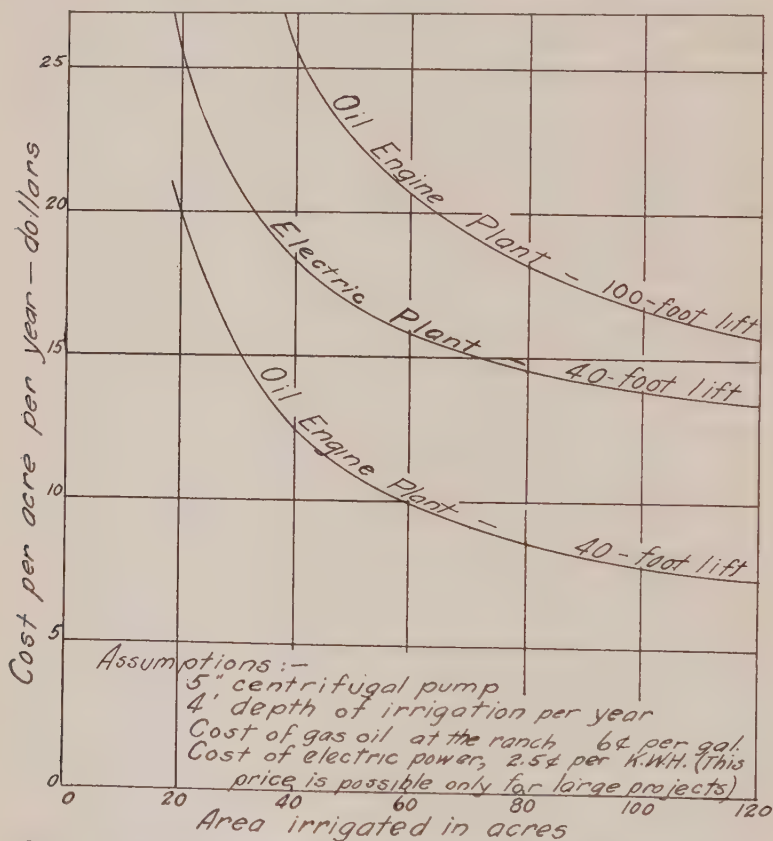 Cost per acre per year — dollars
25
20
15
10
5
0
Oil Engine Plant – 100-foot lift
Electric Plant – 40-foot lift
Oil Engine Plant – 40-foot lift
Assumptions:–
5" centrifugal pump
4' depth of irrigation per year
Cost of gas oil at the ranch 6¢ per gal.
Cost of electric power, 2.5¢ per K.W.H. (This
price is possible only for large projects)
0 20 40 60 80 100 120
Area irrigated in acres